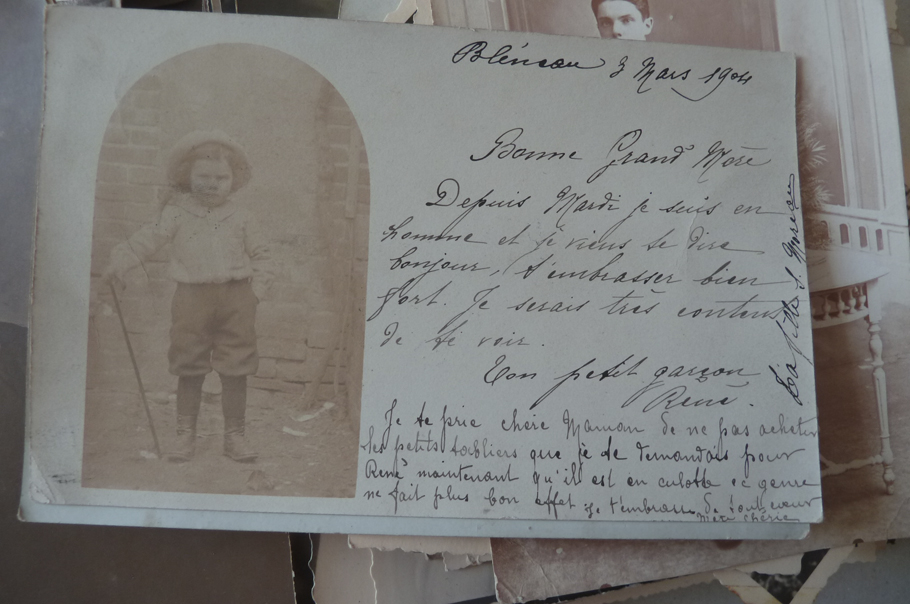 Bléneau 3 Mars 1904
Bonne Grand Mère
Depuis Mardi je suis en
homme et je viens te dire
bonjour, t'embrasser bien
fort. Je serais très content
de te voir.
Ton petit garçon
René.
Je te prie chère Maman de ne pas acheter
les petits tabliers que je te demandais pour
René maintenant qu'il est en culotte ce genre
ne fait plus bon effet je t'embrasse de tout cœur
mère chérie
Ta fille S.